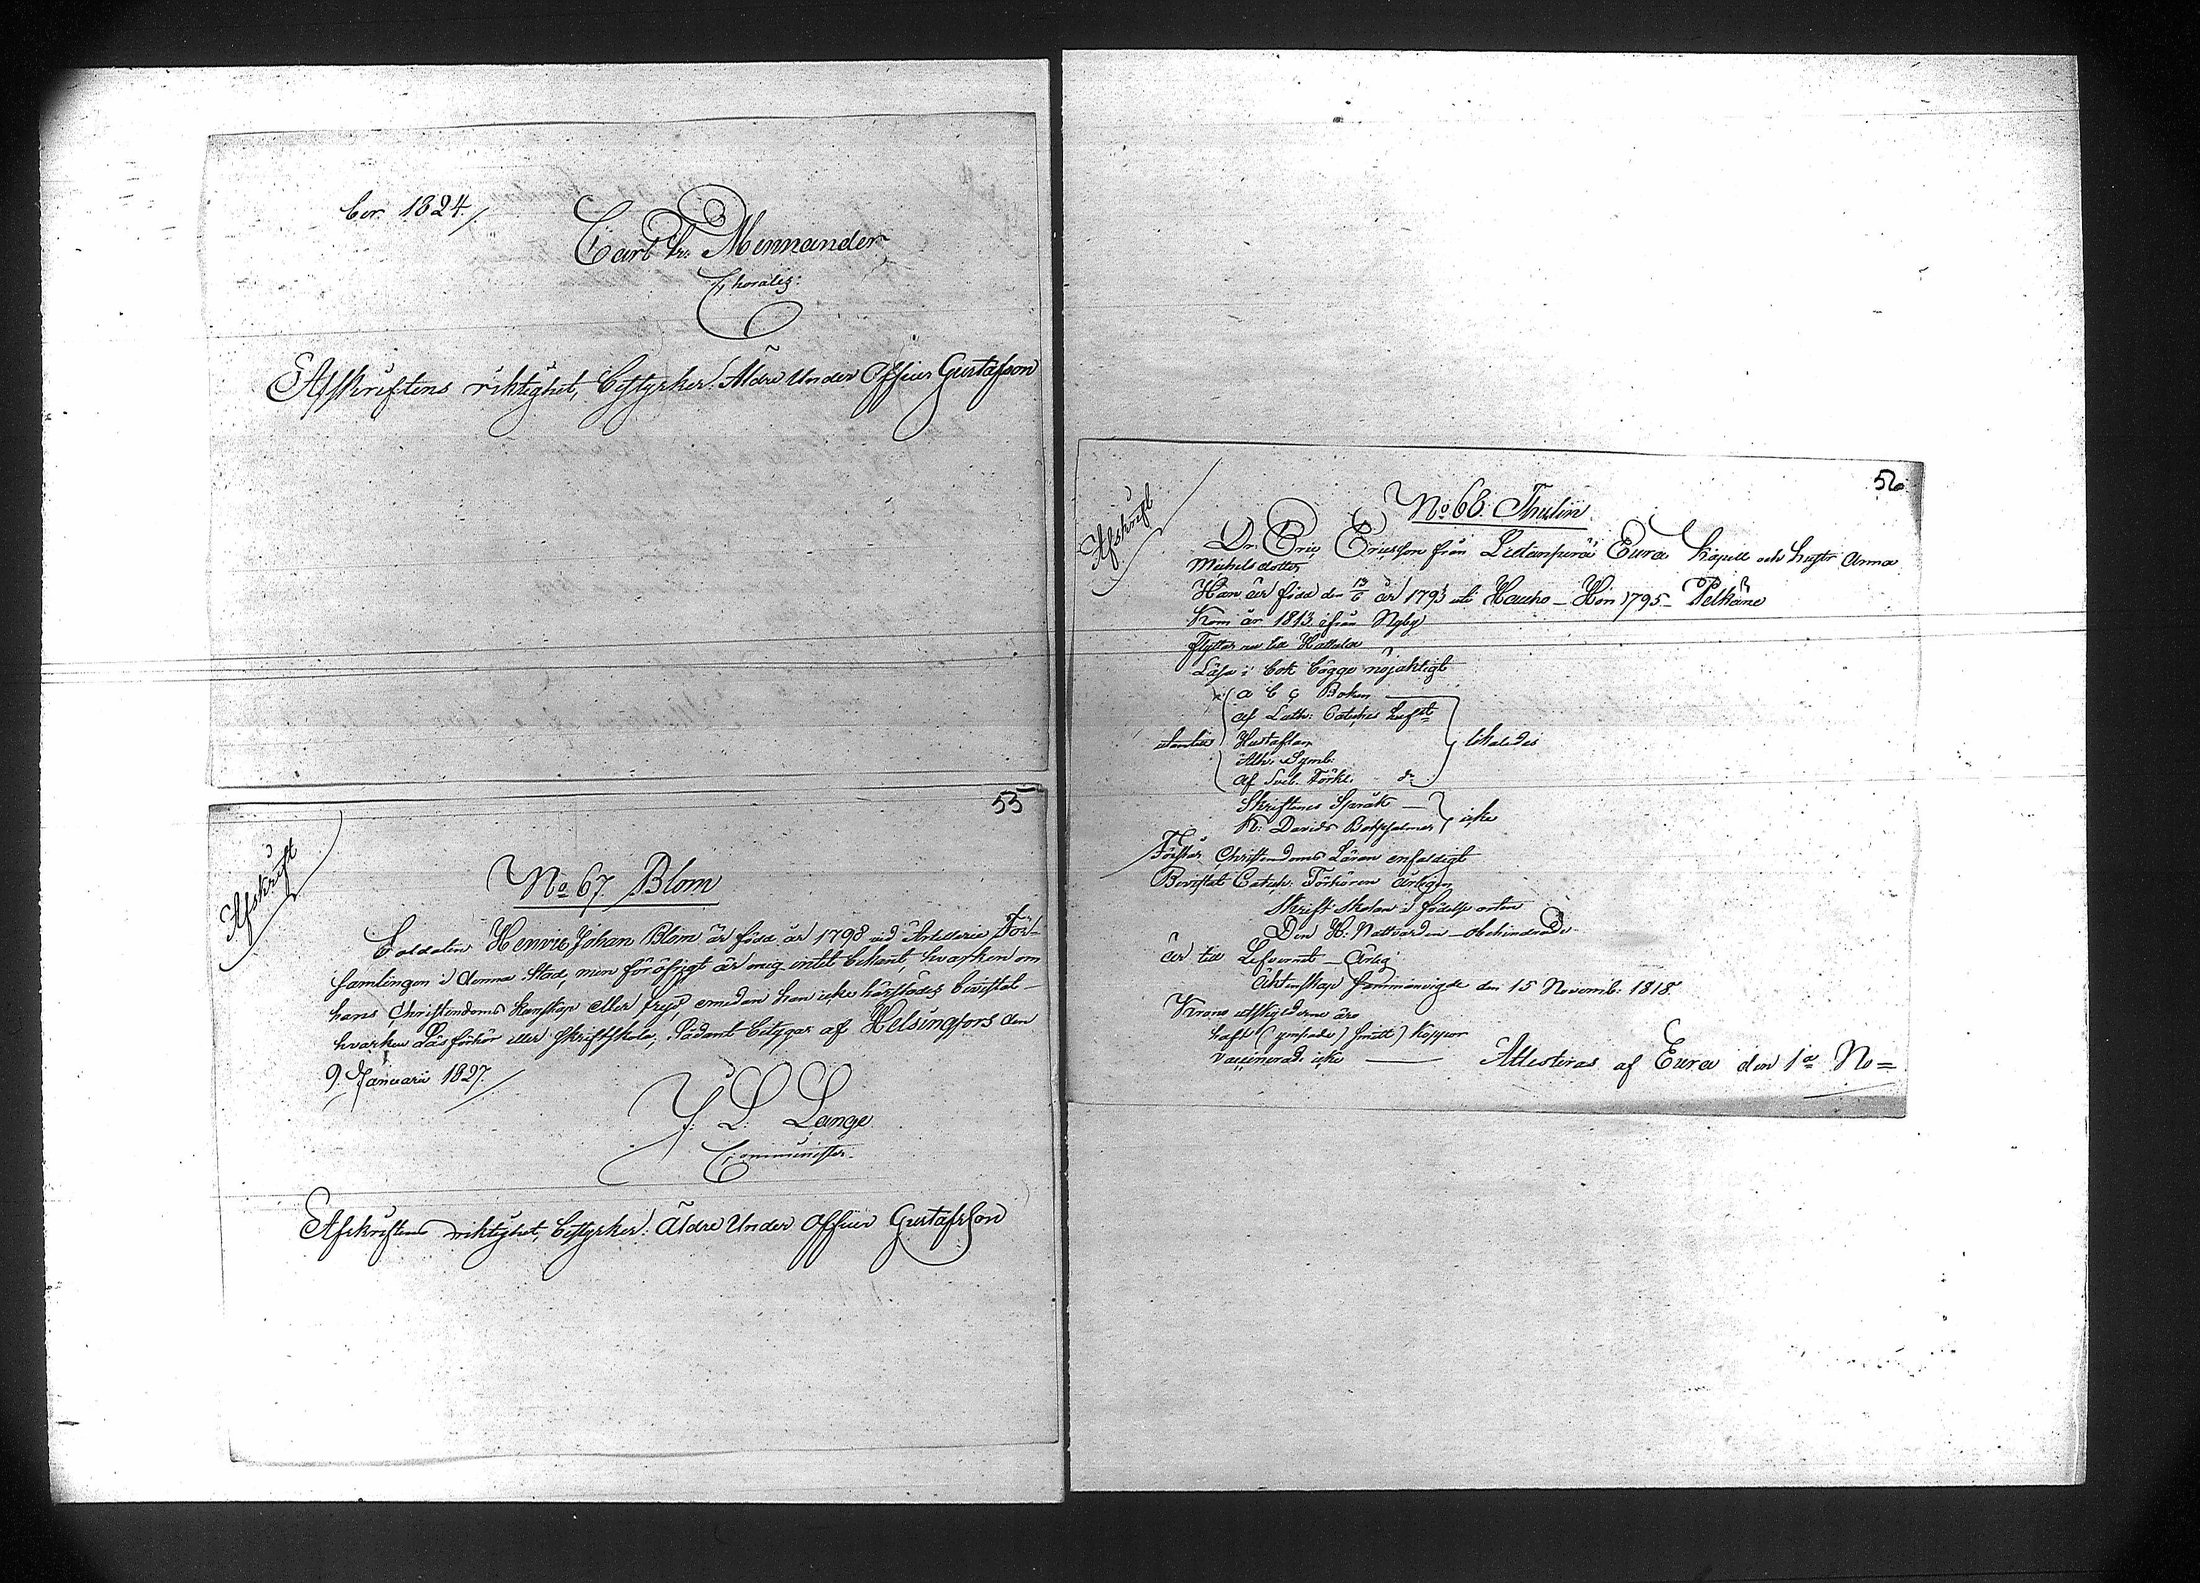 ber. 1824./
Carl Fr. Mennander
Choralis:
Afskriftens riktighet, bestyrker: Äldre Under Officer Gustafson
55
Afskrift
No 67 Blom
Soldaten Henric Johan Blom är född år 1798 vid Artillerie För-
samlingen i denna Stad, men för öfrigt är mig intet bekant, hvarken om
hans Christendoms kunskap eller frejd, emedan han icke härstädes bevistat
hvarken Läsförhör eller Skriftskola; Sådant betygar af Helsingfors den
9. Januarii 1827.
J. L. Lange
Comminister.
Afskriftens riktighet, bestyrker: Äldre Under Officer Gustafson
56
Afskrift
No 68 Thulin
Dr. Eric Ericsson från Eura Kapell och hustr Anna
Michelsdotter
Han är född den 13/6 år 1793 uti Hauho – Hon 1795 – Pelkäne
Kom år 1813 ifrån Nyby
Flyttar nu till Hattula
Läser i bok bägge nöjaktigt
a b c Boken
af Luth: Cateches
utanlär Hustaflan likaledes
Ath. Symb.
af Sveb. Förkl. do
Skriftenes Språk
K. Davids Botpsalmer icke
Förstår Christendoms Läran enfaldigt
Bevistat Catech: Förhören årligen
Skrift skolan i födelse orten
Den H. Nattvarden obehindrade
är till Lefvernet – Ärlig
Äktenskap sammanvigde den 15 Novemb: 1818.
Krono utskylderne äro
haft (ympade) smitt) koppor
vaccinerad icke — Attesteras af Eura den 1a No=